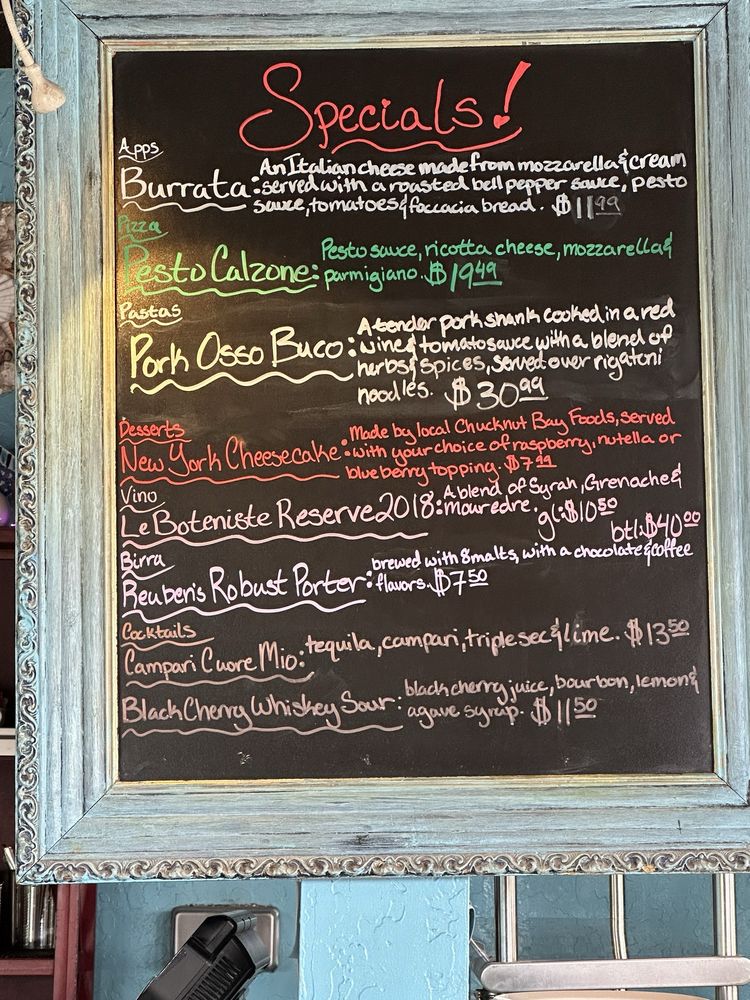 Specials!
Apps
Burrata: An Italian cheese made from mozzarella & cream
served with a roasted bell pepper sauce, pesto
sauce, tomatoes & foccacia bread. $11.99
Pizza
Pesto Calzone: Pesto sauce, ricotta cheese, mozzarella &
parmigiano. $19.49
Pastas
Pork Osso Buco: A tender pork shank cooked in a red
wine & tomato sauce with a blend of
herbs & spices, served over rigatoni
noodles. $30.99
Desserts
New York Cheesecake: Made by local Chucknut Bay Foods, served
with your choice of raspberry, nutella or
blueberry topping. $7.99
Vino
Le Boteniste Reserve 2018: A blend of Syrah, Grenache &
mouredre. gl: $10.50
btl: $40.00
Birra
Reuben's Robust Porter: brewed with 8 malts, with a chocolate & coffee
flavors. $7.50
Cocktails
Campari Cuore Mio: tequila, campari, triple sec & lime. $13.50
Black Cherry Whiskey Sour: black cherry juice, bourbon, lemon &
agave syrup. $11.50